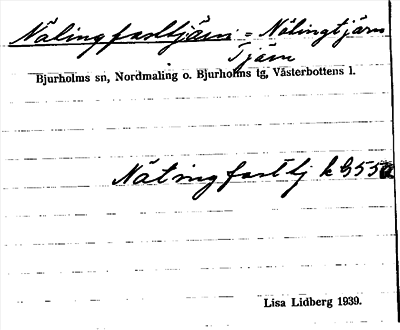 Nälingfasttjärn = Nälingtjärn
Tjärn
Bjurholms sn, Nordmaling o. Bjurholms tg, Västerbottens l.
Nälingfasttj k G550
Lisa Lidberg 1939.